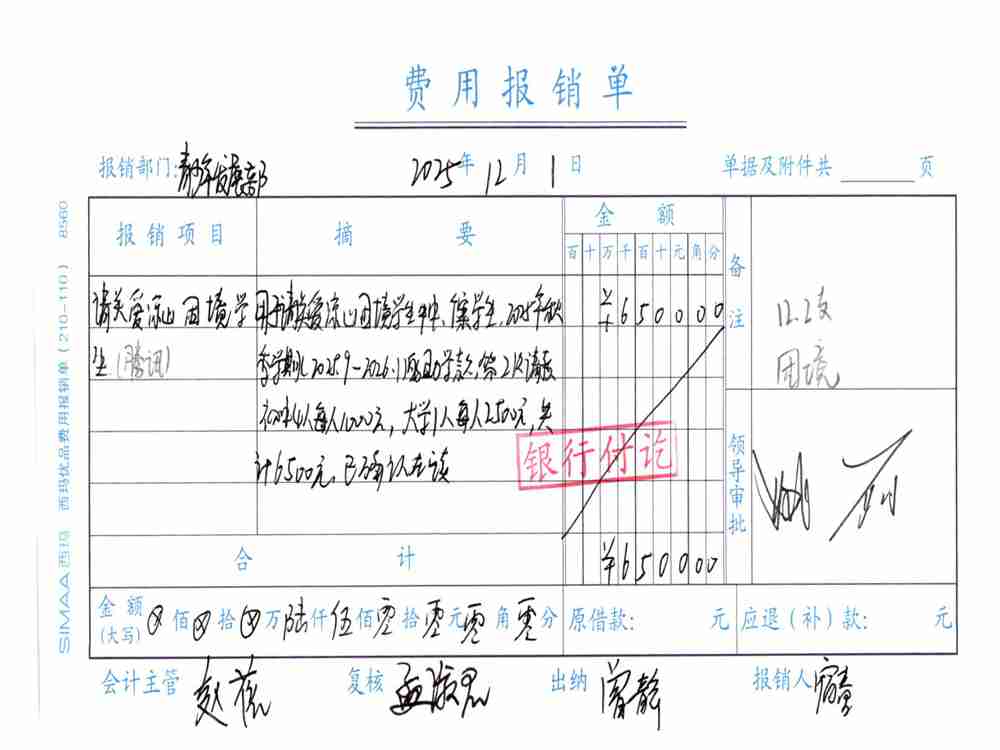 费用报销单
报销部门: 青少年发展部 2025年 12月 1日 单据及附件共 页
报销项目 摘要 金额 备注
百 十 万 千 百 十 元 角 分
请关爱凉山困境学
生(腾讯)
用于请关爱凉山困境学生 学生,2025年秋
季学期 2025.9-2026.1 助学款,第2次请款
初中4人每人1000元,大学1人每人2500元,共
计6500元,已确认在读
¥650000
12.2支
困境
银行付讫
领导审批
合计 ¥650000
金额(大写) ⊗佰⊗拾⊗万陆仟伍佰零拾零元零角零分 原借款: 元 应退(补)款: 元
会计主管 赵 复核 孟淑君 出纳 曾静 报销人
SIMAA 西玛 西玛优品费用报销单(210-110) 8560